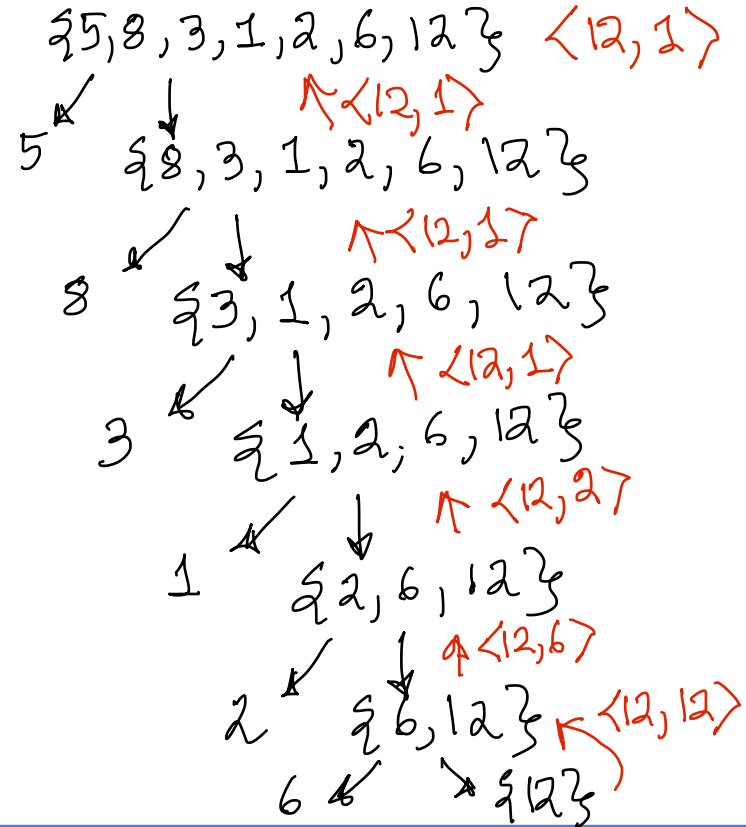 {5,8,3,1,2,6,12} <12,1>
<12,1>
5 {8,3,1,2,6,12}
<12,1>
8 {3,1,2,6,12}
<12,1>
3 {1,2,6,12}
<12,2>
1 {2,6,12}
<12,6>
2 {6,12} <12,12>
6 {12}